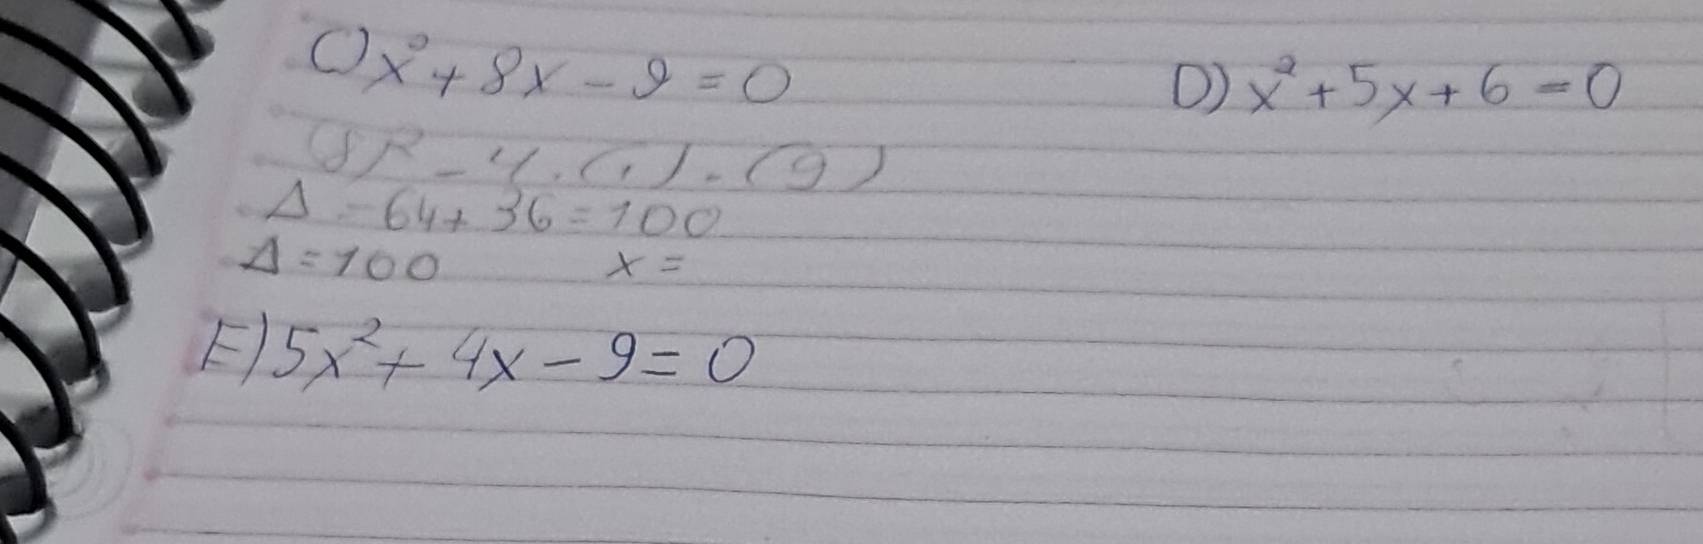 C) x² + 8x - 9 = 0
D) x² + 5x + 6 = 0
(8)² - 4 . (1) . (9)
Δ = 64 + 36 = 100
Δ = 100 x =
E) 5x² + 4x - 9 = 0